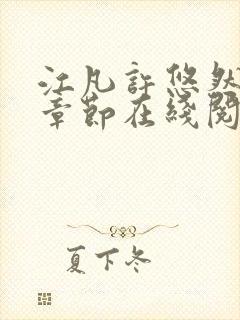 江凡許悠然
章節在綫閱
夏下冬